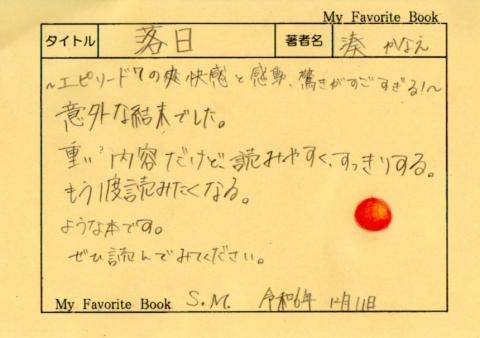 My Favorite Book
タイトル 落日 著者名 湊 かなえ
～エピソード7の爽快感と感動、驚きがすごすぎる!～
意外な結末でした。
重い?内容だけど、読みやすく、すっきりする。
もう1度読みたくなる。
ような本です。
ぜひ読んでみてください。
My Favorite Book S.M. 令和6年 12月11日